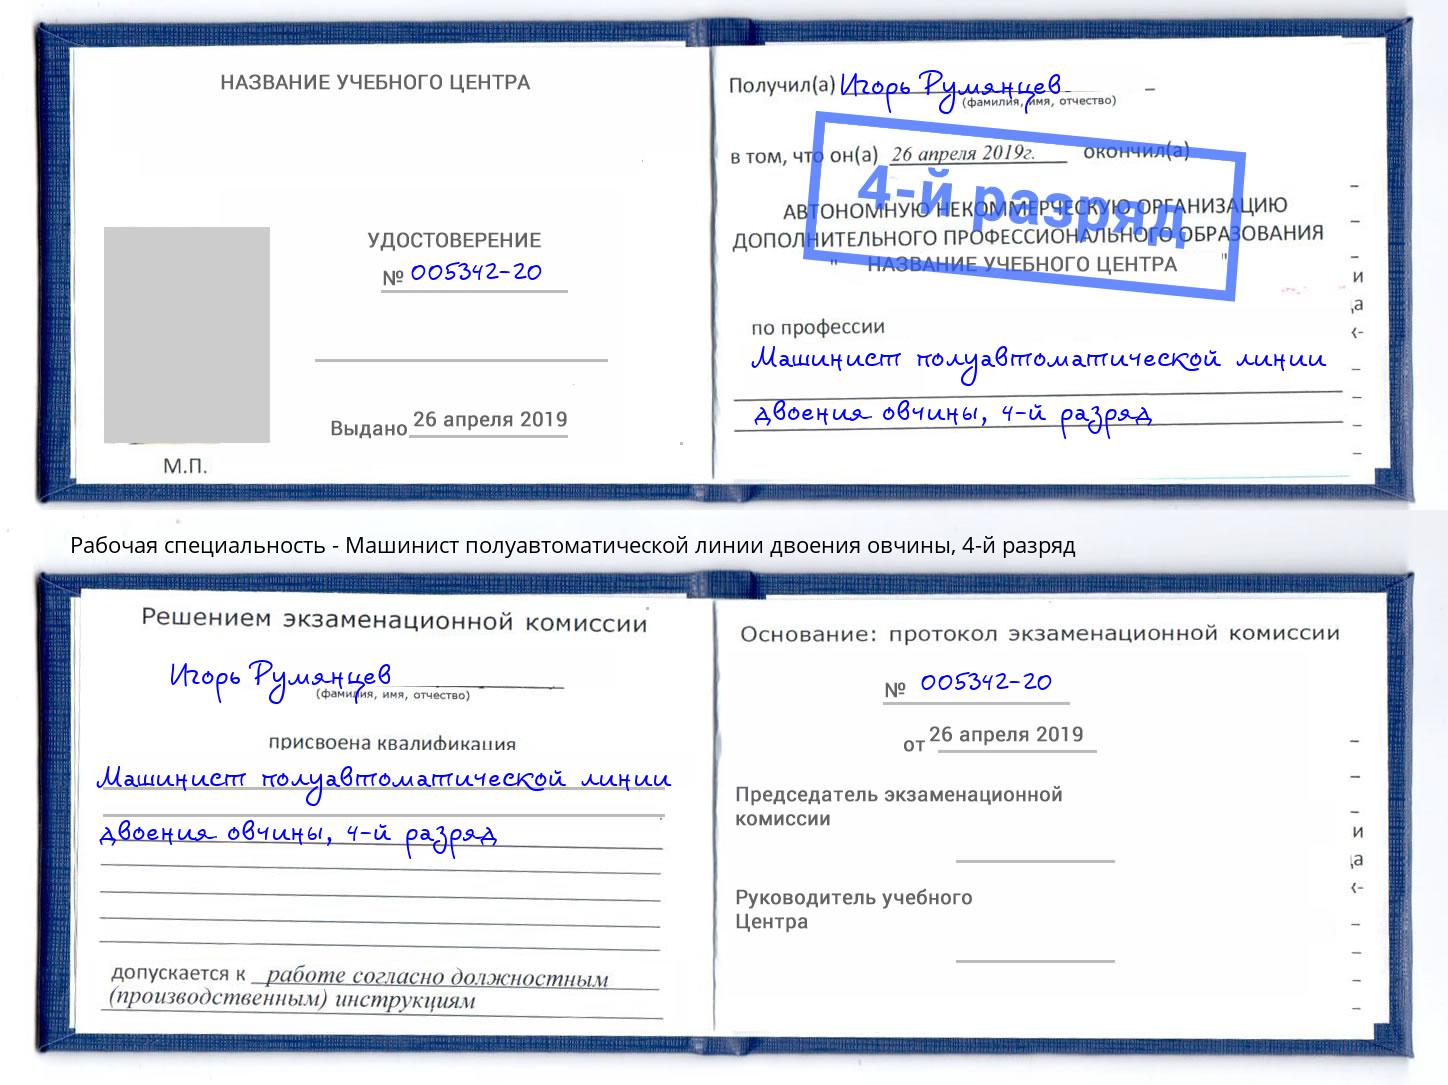 НАЗВАНИЕ УЧЕБНОГО ЦЕНТРА
УДОСТОВЕРЕНИЕ
№ 005342-20
Выдано 26 апреля 2019
М.П.
Получил(а) Игорь Румянцев
(фамилия, имя, отчество)
в том, что он(а) 26 апреля 2019г. окончил(а)
4-й разряд
АВТОНОМНУЮ НЕКОММЕРЧЕСКУЮ ОРГАНИЗАЦИЮ
ДОПОЛНИТЕЛЬНОГО ПРОФЕССИОНАЛЬНОГО ОБРАЗОВАНИЯ
" НАЗВАНИЕ УЧЕБНОГО ЦЕНТРА "
по профессии
Машинист полуавтоматической линии
двоения овчины, 4-й разряд
Рабочая специальность - Машинист полуавтоматической линии двоения овчины, 4-й разряд
Решением экзаменационной комиссии
Игорь Румянцев
(фамилия, имя, отчество)
присвоена квалификация
Машинист полуавтоматической линии
двоения овчины, 4-й разряд
допускается к работе согласно должностным
(производственным) инструкциям
Основание: протокол экзаменационной комиссии
№ 005342-20
от 26 апреля 2019
Председатель экзаменационной
комиссии
Руководитель учебного
Центра